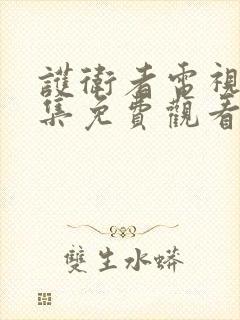 護衛者電視
集免費觀看
雙生水蟒